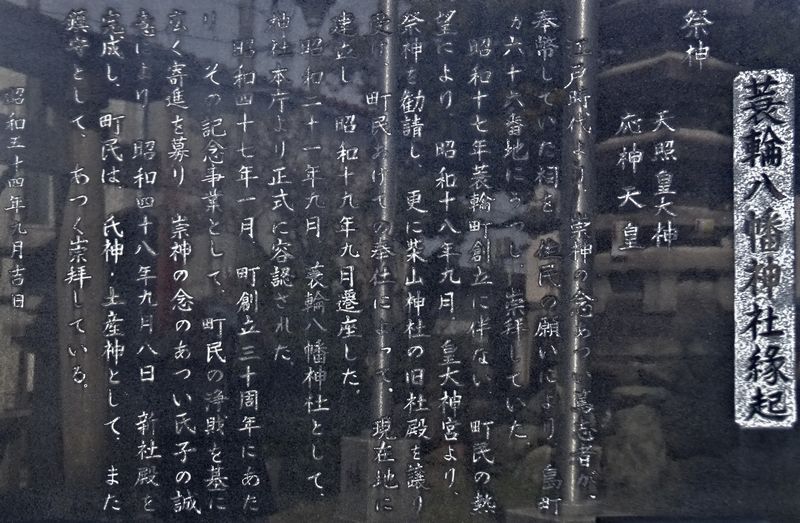 蓑輪八幡神社縁起
祭神
天照皇大神
応神天皇
江戸時代より、崇神の念あつい篤志者が、
奉幣していた祠を、住民の願いにより、島町
六十六番地にうつし、崇拝していた。
昭和十七年蓑輪町創立に伴ない、町民の熱
望により、昭和十八年九月、皇大神宮より、
祭神を勧請し、更に柴山神社の旧社殿を譲り
受け、町民あげての奉仕によって、現在地に
建立し、昭和十九年九月遷座した。
昭和二十一年九月、蓑輪八幡神社として、
神社本庁より正式に容認された。
昭和四十七年一月、町創立三十周年にあた
り、その記念事業として、町民の浄財を基に
広く寄進を募り、崇神の念のあつい氏子の誠
意により、昭和四十八年九月八日、新社殿を
完成し、町民は、氏神・土産神として、また
鎮守として、あつく崇拝している。
昭和五十四年九月吉日